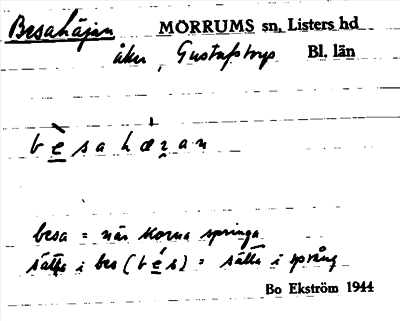 Besahäjan MÖRRUMS sn, Listers hd
åker, Gustafstorp Bl. län
besa = när korna springa
sätta i bes (bes) = sätta i språng
Bo Ekström 1944